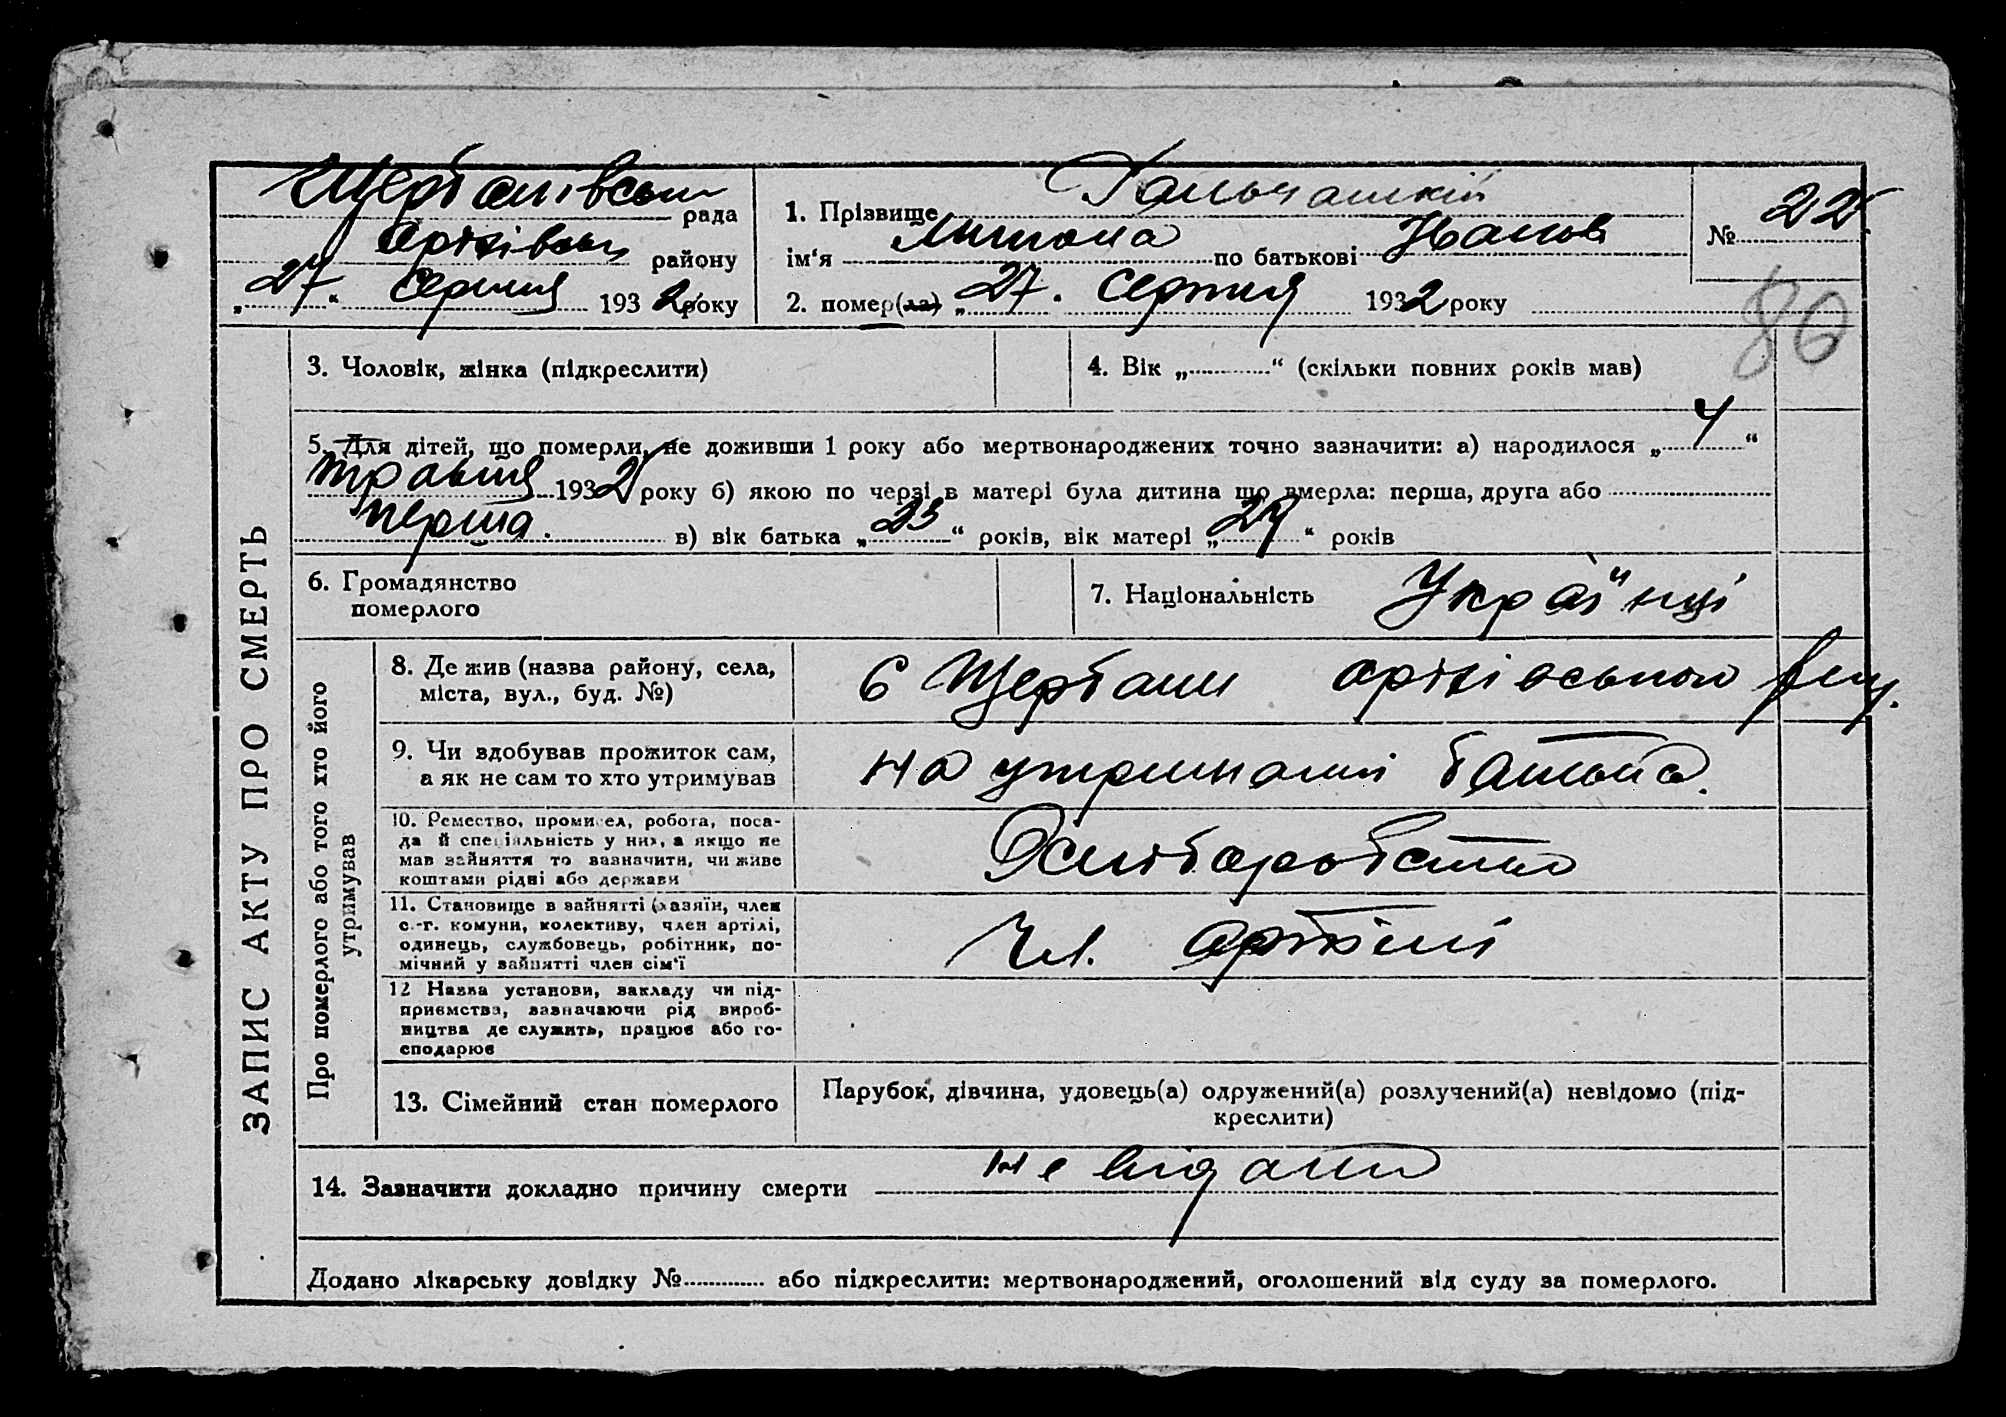 Щербанівська рада
Арбузівськ району
„27“ Серпня 1932 року
1. Прізвище
ім'я по батькові Іванов
2. помер(ла) „27. Серпня 1932 року
№ 22
80
ЗАПИС АКТУ ПРО СМЕРТЬ
3. Чоловік, жінка (підкреслити)
4. Вік „ “ (скільки повних років мав)
5. Для дітей, що померли, не доживши 1 року або мертвонароджених точно зазначити: а) народилося „4“
травня 1932 року б) якою по черзі в матері була дитина що вмерла: перша, друга або
перша. в) вік батька „23“ років, вік матері „24“ років
6. Громадянство
померлого
7. Національність Українці
Про померлого або того хто його
утримував
8. Де жив (назва району, села,
міста, вул., буд. №)
С Щербани
9. Чи вдобував прожиток сам,
а як не сам то хто утримував
на утриманні батька.
10. Ремество, промисел, робота, поса-
да й спеціяльність у них, а якщо не
мав зайняття то вазначити, чи живе
коштами рідні або держави
Хліборобство
11. Становище в зайнятті (хазяїн, член
с.-г. комуни, колективу, член артілі,
одинець, службовець, робітник, по-
мічний у зайнятті член сім'ї
Чл. артілі
12 Назва установи, закладу чи під-
приємства, вазначаючи рід вироб-
ництва де служить, працює або го-
сподарює
13. Сімейний стан померлого
Парубок, дівчина, удовець(а) одружений(а) розлучений(а) невідомо (під-
креслити)
14. Зазначити докладно причину смерти
Додано лікарську довідку № або підкреслити: мертвонароджений, оголошений від суду за померлого.